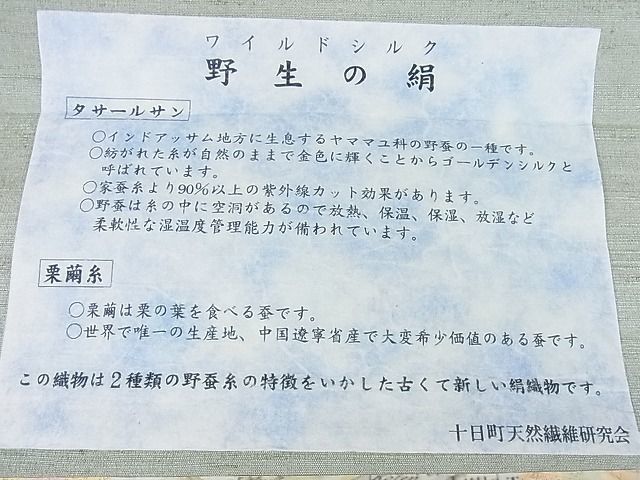 ワイルドシルク
野生の絹
タサールサン
○インドアッサム地方に生息するヤママユ科の野蚕の一種です。
○紡がれた糸が自然のままで金色に輝くことからゴールデンシルクと
呼ばれています。
○家蚕糸より90%以上の紫外線カット効果があります。
○野蚕は糸の中に空洞があるので放熱、保温、保湿、放湿など
柔軟性な湿温度管理能力が備われています。
栗繭糸
○栗繭は栗の葉を食べる蚕です。
○世界で唯一の生産地、中国遼寧省産で大変希少価値のある蚕です。
この織物は2種類の野蚕糸の特徴をいかした古くて新しい絹織物です。
十日町天然繊維研究会